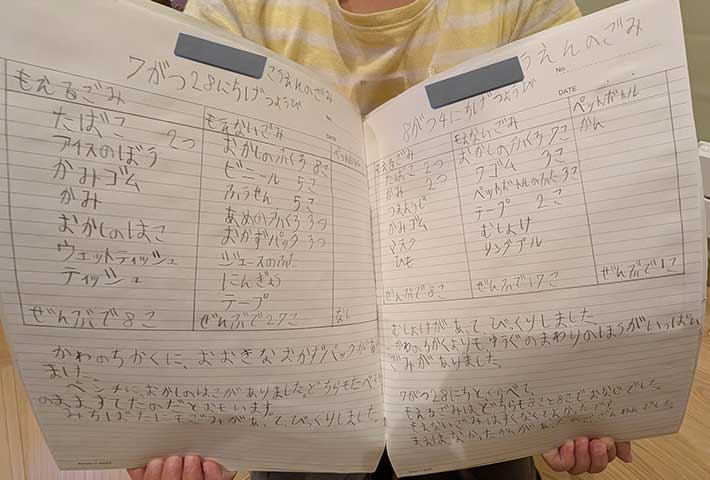 こうえんのごみ
7がつ28にちげつようび
もえるごみ
たばこ 2つ
アイスのぼう
かみゴム
かみ
おかしのはこ
ウェットティッシュ
ティッシュ
ぜんぶで8こ
もえないごみ
おかしのふくろ 8こ
ビニール 5こ
ふうせん 5こ
あめのふくろ 3つ
おかずパック 3つ
ジュースのふた
にんぎょう
テープ
ぜんぶで27こ
ペットボトル
なし
かわのちかくに、おおきなおかずパックがあり
ました。
ベンチに、おかしのはこがありました。どちらもたべて
そのまますてたのだとおもいます。
みちばたにもごみがあって、びっくりしました。
うえんのごみ
No.
8がつ4にちげつようび
DATE
もえるごみ
たばこ 2つ
かみ 2つ
つまようじ
かみゴム
マスク
ひも
ぜんぶで8こ
もえないごみ
おかしのふくろ 7こ
ワゴム 3こ
ペットボトルのふた 3こ
テープ 2こ
むしよけ
リングプル
ぜんぶで17こ
ペットボトル
かん
ぜんぶで1こ
むしよけがあって、びっくりしました。
かわのちかくよりも、ゆうぐのまわりのほうがいっぱい
ごみがありました。
7がつ28にちとくらべて、
もえるごみはどちらも8こと8こでおなじでした。
もえないごみはすくなくてよかったです。
まえはなかったかんがあったのでざんねんでした。